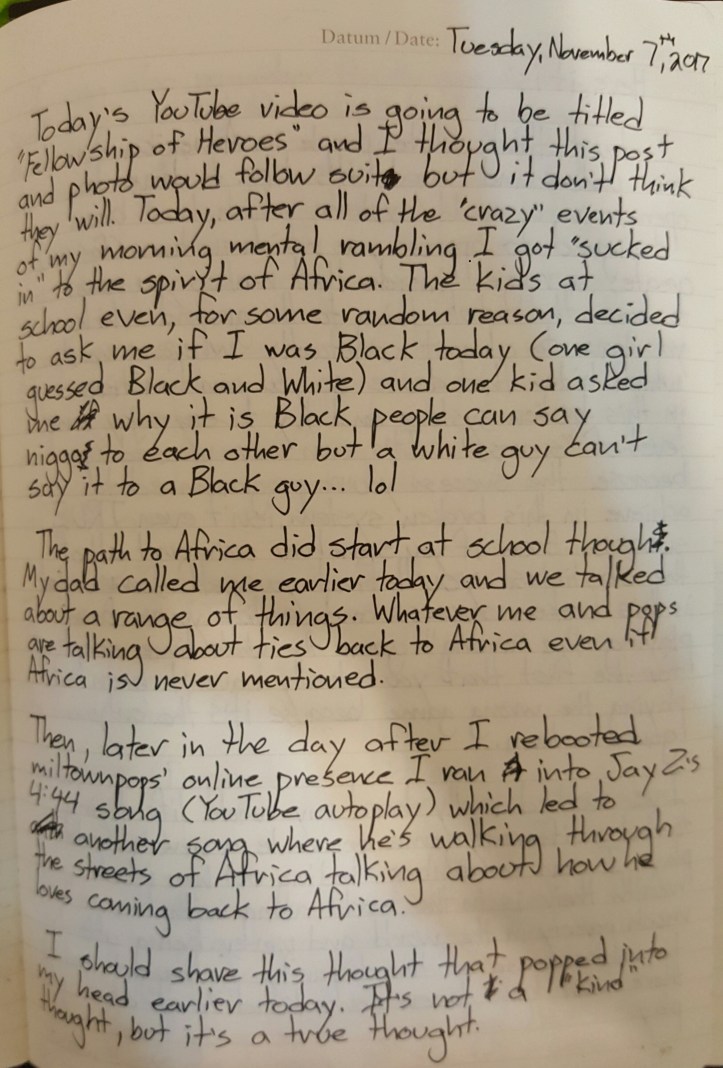 Datum / Date: Tuesday, November 7th, 2017
Today's YouTube video is going to be titled
"Fellowship of Heroes" and I thought this post
and photo would follow suit but it don't think
they will. Today, after all of the "crazy" events
of my morning mental rambling I got "sucked
in" to the spiryt of Africa. The kids at
school even, for some random reason, decided
to ask me if I was Black today (one girl
guessed Black and White) and one kid asked
me why it is Black people can say
nigga to each other but a white guy can't
say it to a Black guy... lol
The path to Africa did start at school though.
My dad called me earlier today and we talked
about a range of things. Whatever me and pops
are talking about ties back to Africa even if
Africa is never mentioned.
Then, later in the day after I rebooted
miltownpops' online presence I ran into Jay Z's
4:44 song (YouTube autoplay) which led to
another song where he's walking through
the streets of Africa talking about how he
loves coming back to Africa.
I should share this thought that popped into
my head earlier today. It's not a "kind"
thought, but it's a true thought.